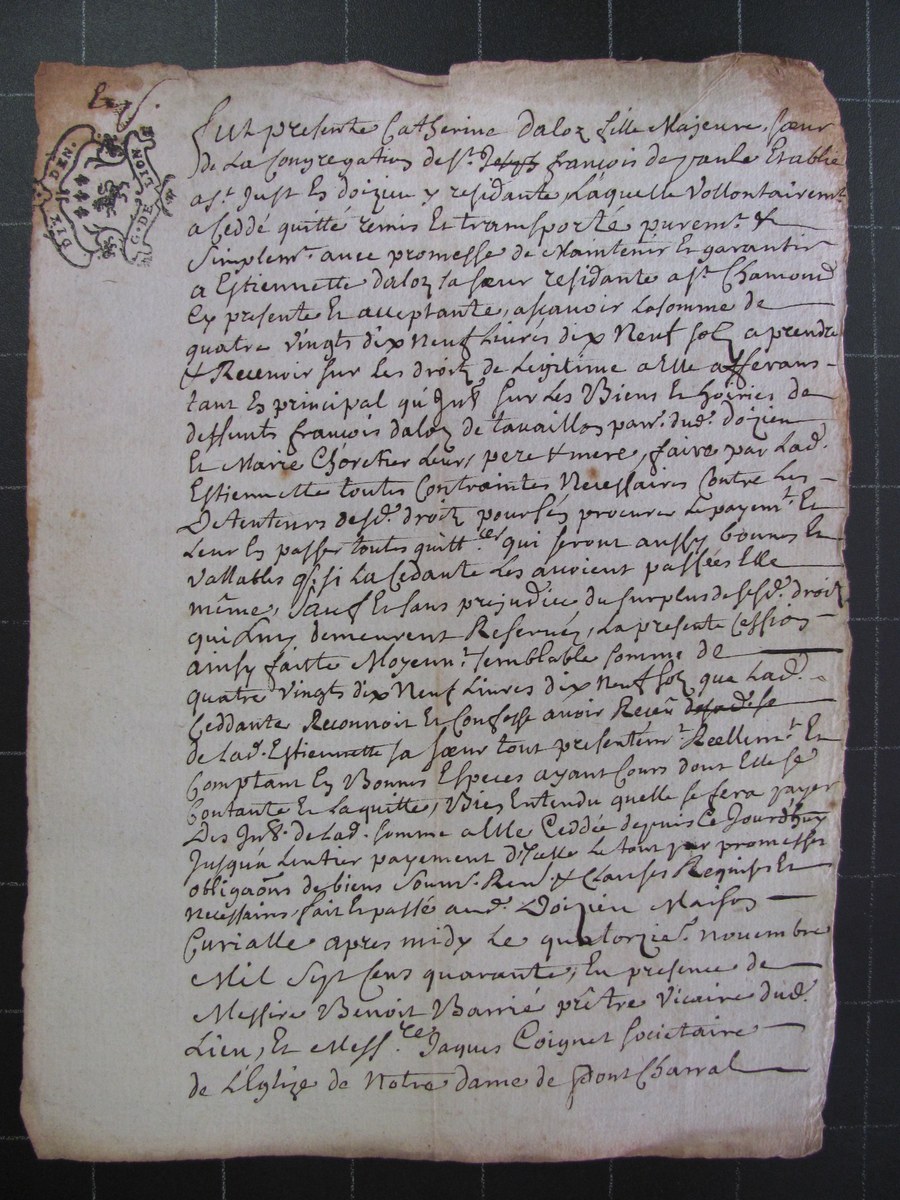 DIX DEN.
G. DE LYON
Fut presente Catherine daloz fille Majeure, sœur
de La Congregation de St. Joseph françois de paule Etablie
a St. Just En doizieu y residante, Laquelle Vollontairemt.
a Ceddé quitté remis Et transporté puremt. &
Simplemt. avec promesse de Maintenir Et garantir
a Estiennette daloz sa sœur residante a St. Chamond
Cy presente Et acceptante, ascavoir La somme de
quatre Vingts dix Neuf Livres dix Neuf solz a prendre
& Recevoir sur Les droitz de Legitime a Elle afferans
tant En principal qu'Jnts. sur Les Biens Et hoiries de
deffunts françois daloz de tavaillos parr. dud. doizieu
Et Marie Choretier Leurs pere & mere, faire par Lad.
Estiennette toutes Contraintes Necessaires Contre Les
Detenteurs desd. droitz pour s'en procurer Le payemt. Et
Leur En passer toutes quittces. qui seront aussy bonnes Et
Vallables q. si La Cedante Les avoient passées Elle
même, Sauf Et sans prejudice du surplus de sesd. droitz
qui Luy demeurent Reservés, La presente Cession
ainsy faitte Moyent. semblable somme de
quatre Vingts dix Neuf Livres dix Neuf solz que Lad.
Ceddante Reconnoit Et Confesse avoir Receu
de Lad. Estiennette sa sœur tout presentemt. Réellemt. Et
Comptant En Bonnes Especes ayant Cours dont Elle se
Contante Et La quitte, Bien Entendu quelle se fera payer
Des Jnts. de Lad. somme a Elle Ceddée depuis Ce Jourdhuy
Jusqu'a L'entier payement d'Jcelle Le tout par promesses
obligaõns de biens Soumns. Renõns & Clauses Requises Et
necessaires, fait Et passé aud. Doizieu Maison
Curialle apres midy Le quatorzie. novembre
Mil Sept Cens quarante, En presence de
Messire Benoit Barrié prêtre Vicaire dud.
Lieu, Et Messre. Jaques Coignet Societaire
de L'Eglize de Notre dame de pont Charral